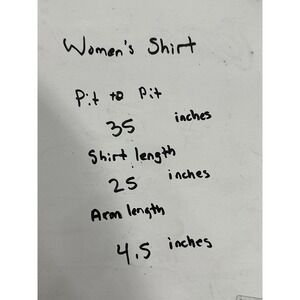 Women's Shirt
Pit to Pit
35 inches
Shirt length
25 inches
Arm length
4.5 inches